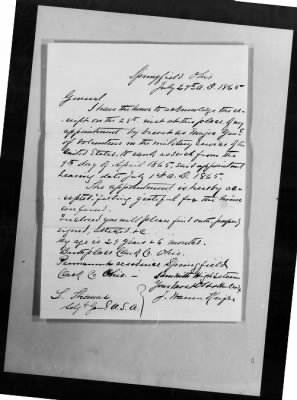 Springfield Ohio
July 29th A.D. 1865
General,
I have the honor to acknowledge the re-
ceipt on the 28th inst at this place of my
appointment by brevet as Major Genl
of Volunteers in the military service of the
United States, to rank as such from the
9th day of April 1865, said appointment
bearing date July 1st A.D. 1865.
The appointment is hereby ac-
cepted, feeling grateful for the honor
conferred.
Enclosed you will please find oath properly
signed, attested &c.
My age is 29 years & 6 months.
Birth place Clark C. Ohio.
Permanent residence Springfield,
Clark C. Ohio.
I am with high esteem
Your
J. Warren Keifer
L. Thomas
Adj't Genl U.S.A.